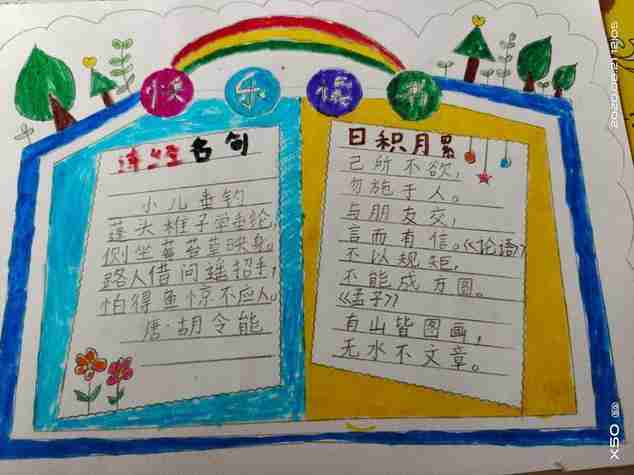 快乐读书
诗经名句
小儿垂钓
蓬头稚子学垂纶,
侧坐莓苔草映身。
路人借问遥招手,
怕得鱼惊不应人。
唐·胡令能
日积月累
己所不欲,
勿施于人。
与朋友交,
言而有信。《论语》
不以规矩,
不能成方圆。
《孟子》
有山皆图画,
无水不文章。
X50